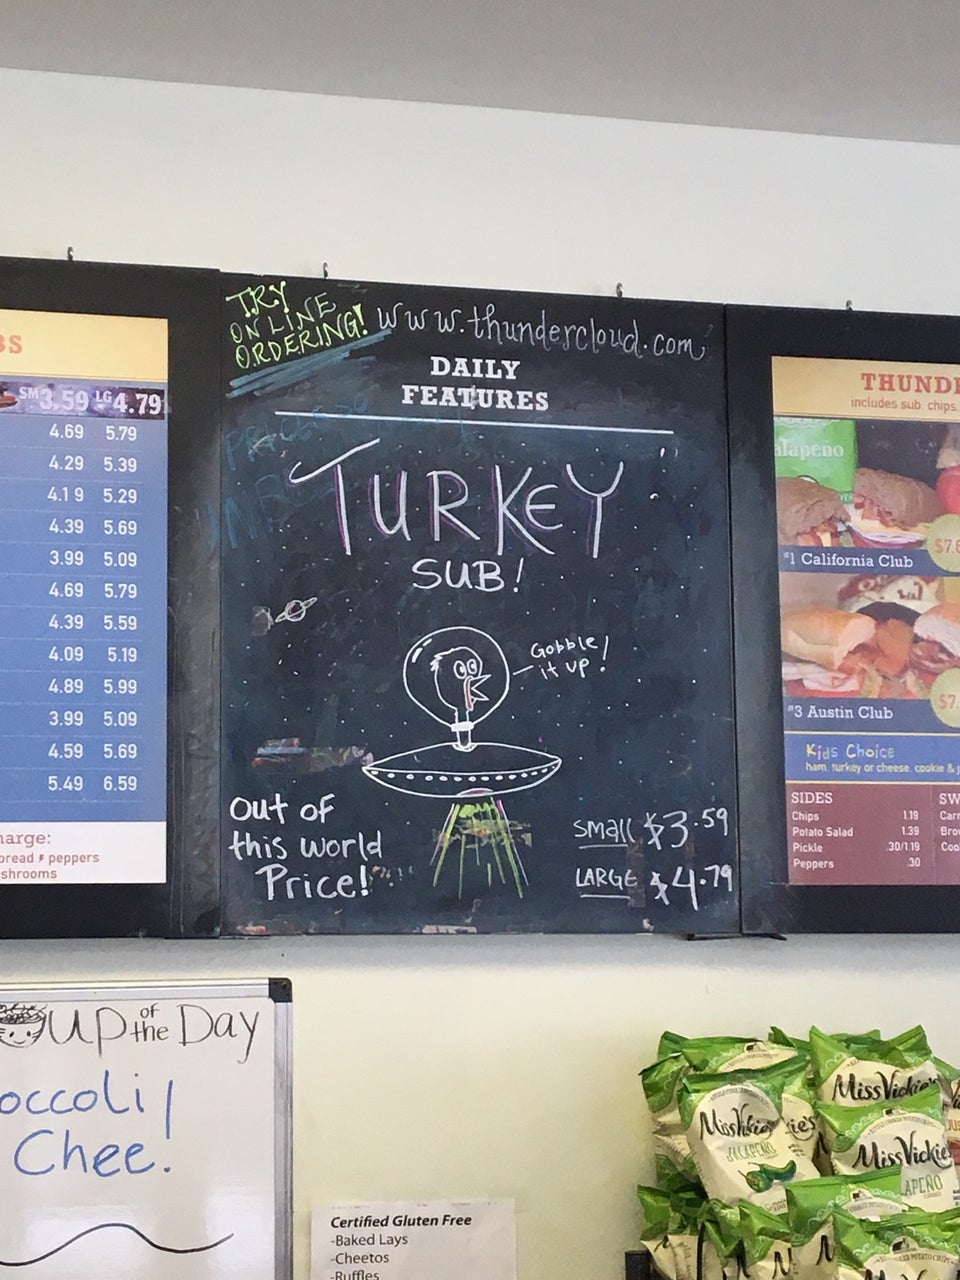 TRY
ON LINE
ORDERING!
www.thundercloud.com
DAILY
FEATURES
TURKEY
SUB!
Gobble
it up!
Out of
this world
Price!
small $3.59
LARGE $4.79
BS
SM 3.59 LG 4.79
4.69 5.79
4.29 5.39
4.19 5.29
4.39 5.69
3.99 5.09
4.69 5.79
4.39 5.59
4.09 5.19
4.89 5.99
3.99 5.09
4.59 5.69
5.49 6.59
harge:
bread peppers
shrooms
THUNDE
includes sub, chips,
alapeno
$7.6
#1 California Club
$7.
#3 Austin Club
Kids Choice
ham, turkey or cheese, cookie & j
SIDES
Chips 1.19
Potato Salad 1.39
Pickle .30/1.19
Peppers .30
SW
Carr
Brow
Coo
oup of the Day
occoli
Chee!
Certified Gluten Free
-Baked Lays
-Cheetos
-Ruffles
Miss Vickie's
Miss Vickie's
JALAPEÑO
Miss Vickie
APEÑO